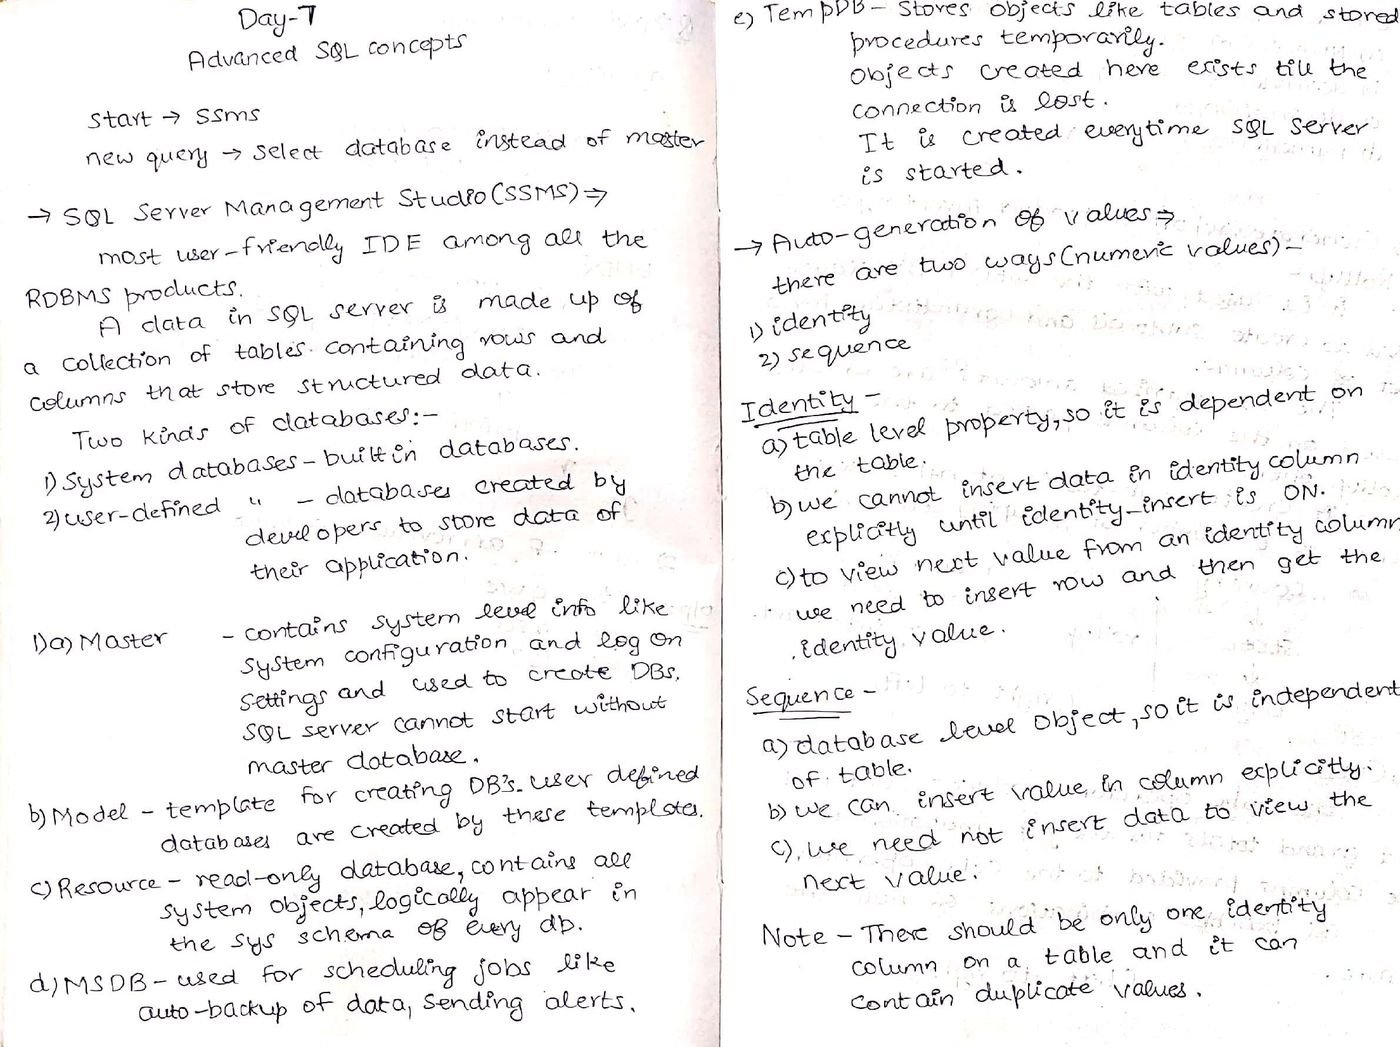 Day-7
Advanced SQL concepts
start → ssms
new query → select database instead of master
→ SQL Server Management Studio (SSMS) ⇒
most user-friendly IDE among all the
RDBMS products.
A data in SQL server is made up of
a collection of tables containing rows and
columns that store structured data.
Two kinds of databases:-
1) System databases - built in databases.
2) user-defined " - databases created by
developers to store data of
their application.
1) a) Master - contains system level info like
system configuration and log on
settings and used to create DBs.
SQL server cannot start without
master database.
b) Model - template for creating DB's. user defined
databases are created by these templates.
c) Resource - read-only database, contains all
system objects, logically appear in
the sys schema of every db.
d) MSDB - used for scheduling jobs like
auto-backup of data, sending alerts.
e) TempDB - Stores objects like tables and stored
procedures temporarily.
Objects created here exists till the
connection is lost.
It is created everytime SQL Server
is started.
→ Auto-generation of values ⇒
there are two ways (numeric values) -
1) identity
2) sequence
Identity -
a) table level property, so it is dependent on
the table.
b) we cannot insert data in identity column
explicitly until identity_insert is ON.
c) to view next value from an identity column
we need to insert row and then get the
identity value.
Sequence -
a) database level object, so it is independent
of table.
b) we can insert value in column explicitly.
c) we need not insert data to view the
next value.
Note - There should be only one identity
column on a table and it can
contain duplicate values.